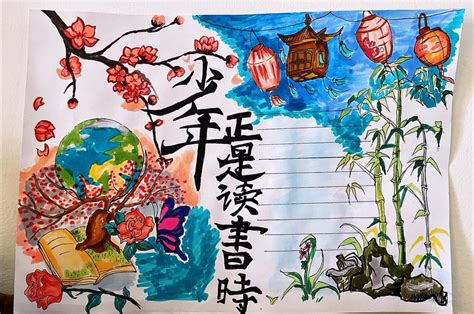 少年
正是读書時